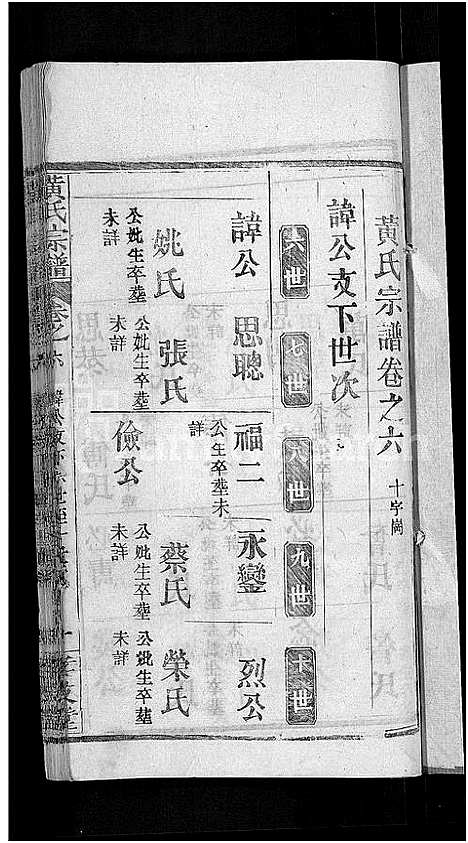 黄氏宗譜卷之六 十字崗
諱公支下世次
六世 七世 八世 九世 十世
諱公 思聰 福二 永鑾 烈公
公生卒塟未詳
姚氏 張氏 儉公 蔡氏 榮氏
公妣生卒塟未詳
公妣生卒塟未詳
公妣生卒塟未詳
公妣生卒塟未詳
黄氏宗譜 卷之六